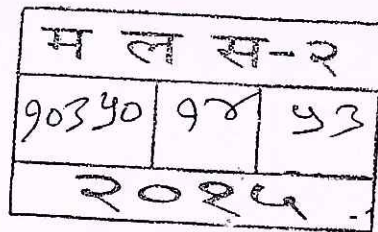 म ल स-२
१०३५० १४ ५३
२०२५